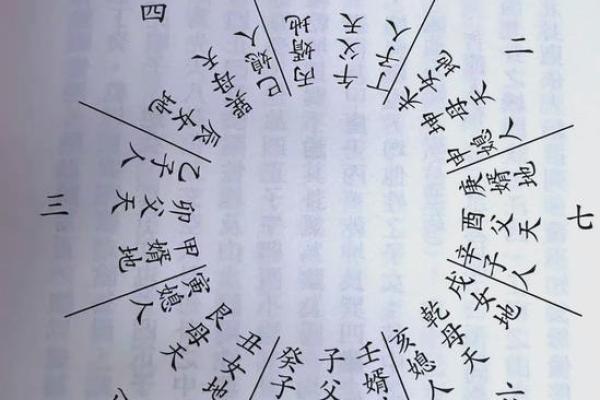 四
巳媳人
丙婿地
午父天
丁子人
二
未女地
坤母天
申媳人
七
庚婿地
酉父天
辛子人
戌女地
乾母天
亥媳人
壬婿
子父
癸子
丑女地
艮母天
寅媳人
三
甲婿地
卯父天
乙子人
辰女地
巽母天